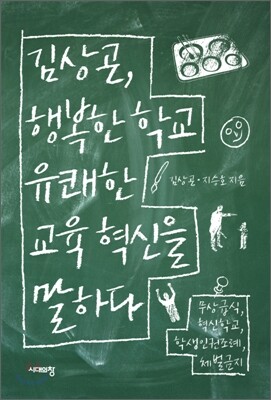 김상곤,
행복한 학교
유쾌한
교육 혁신을
말하다
김상곤·지승호 지음
무상급식,
혁신학교,
학생인권조례,
체벌금지
시대의창